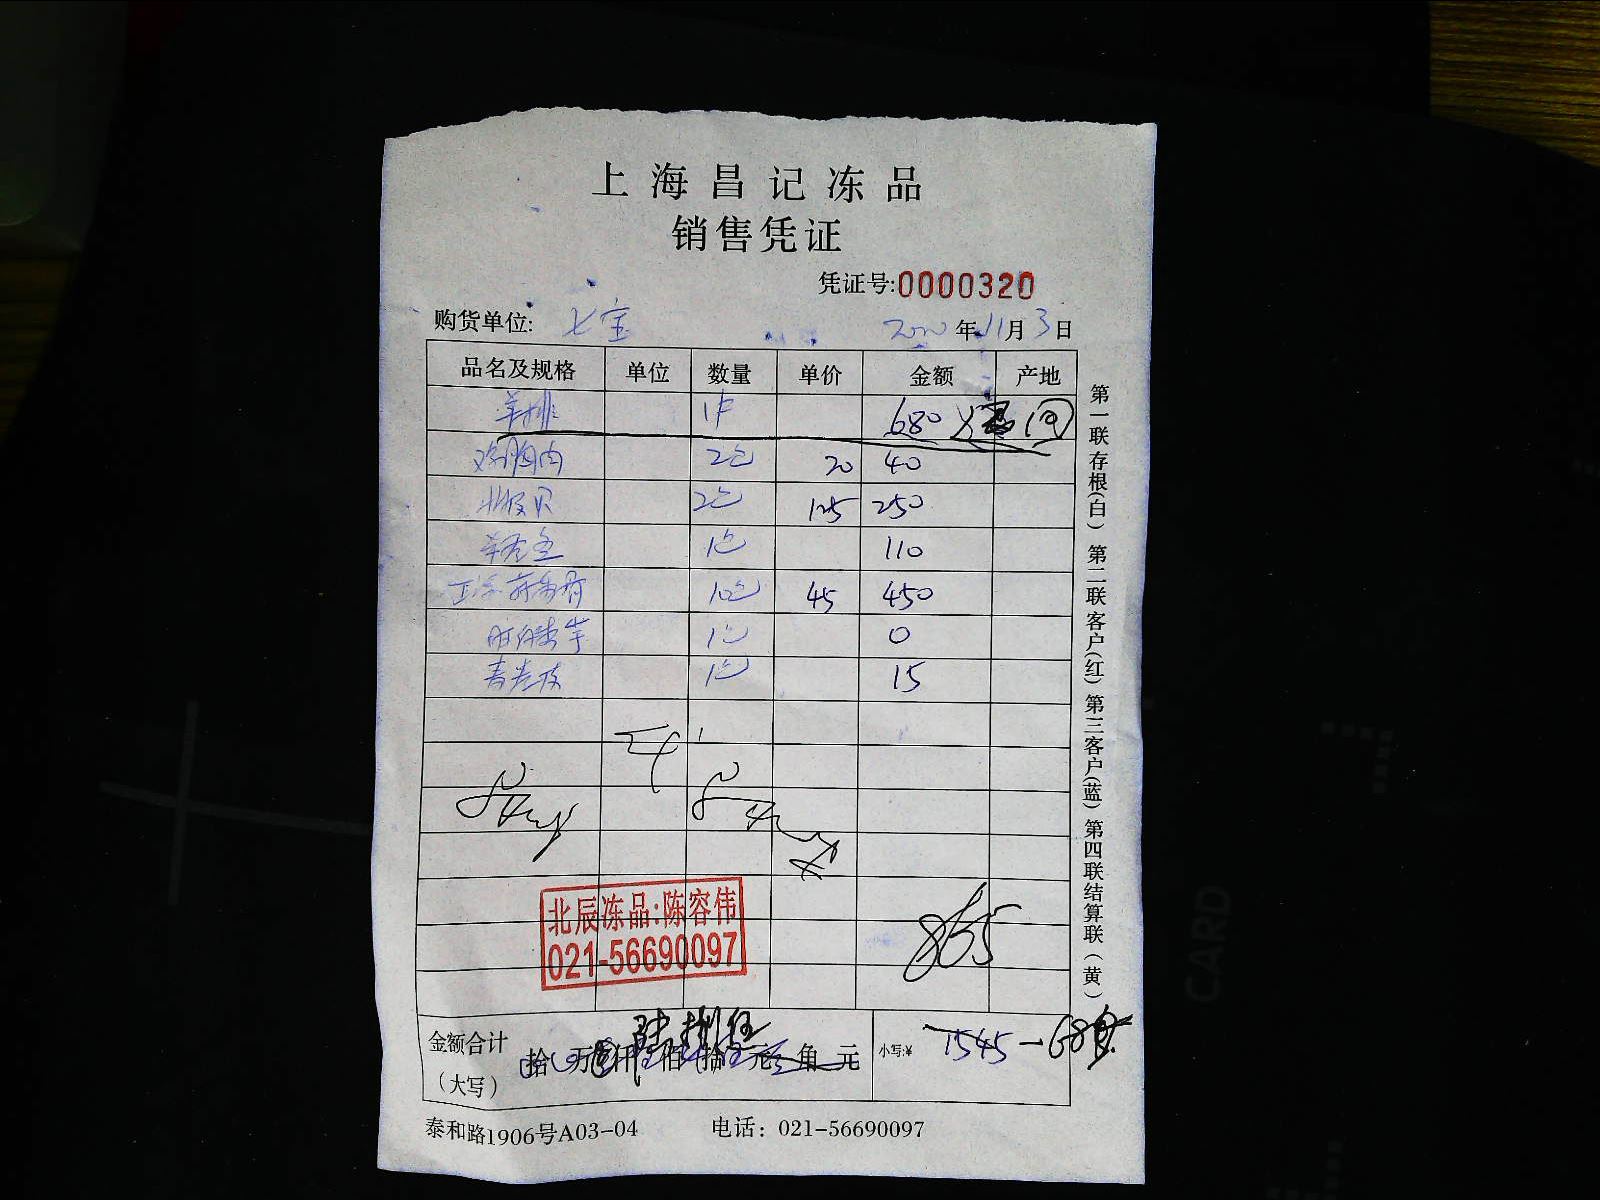 上海昌记冻品
销售凭证
凭证号:0000320
购货单位: 七宝 2020年11月3日
品名及规格 单位 数量 单价 金额 产地
羊排 1件 680 退回
鸡胸肉 2包 20 40
北极贝 2包 125 250
1包 110
10包 45 450
1包 0
1包 15
北辰冻品:陈容伟
021-56690097
865
金额合计
(大写)
拾 万 仟 佰 拾 元 角 元
小写:¥ 1545-680
泰和路1906号A03-04 电话: 021-56690097
第一联存根(白) 第二联客户(红) 第三客户(蓝) 第四联结算联(黄)